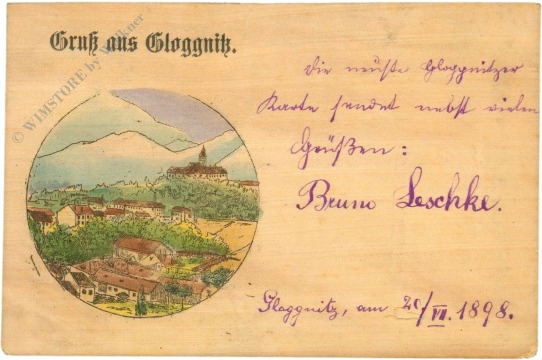 Gruß aus Gloggnitz.
© WIMSTORE by Walkner
Die neuste Gloggnitzer
Karte sendet nebst vielen
Grüßen:
Bruno Leschke.
Gloggnitz, am 20/VII. 1898.